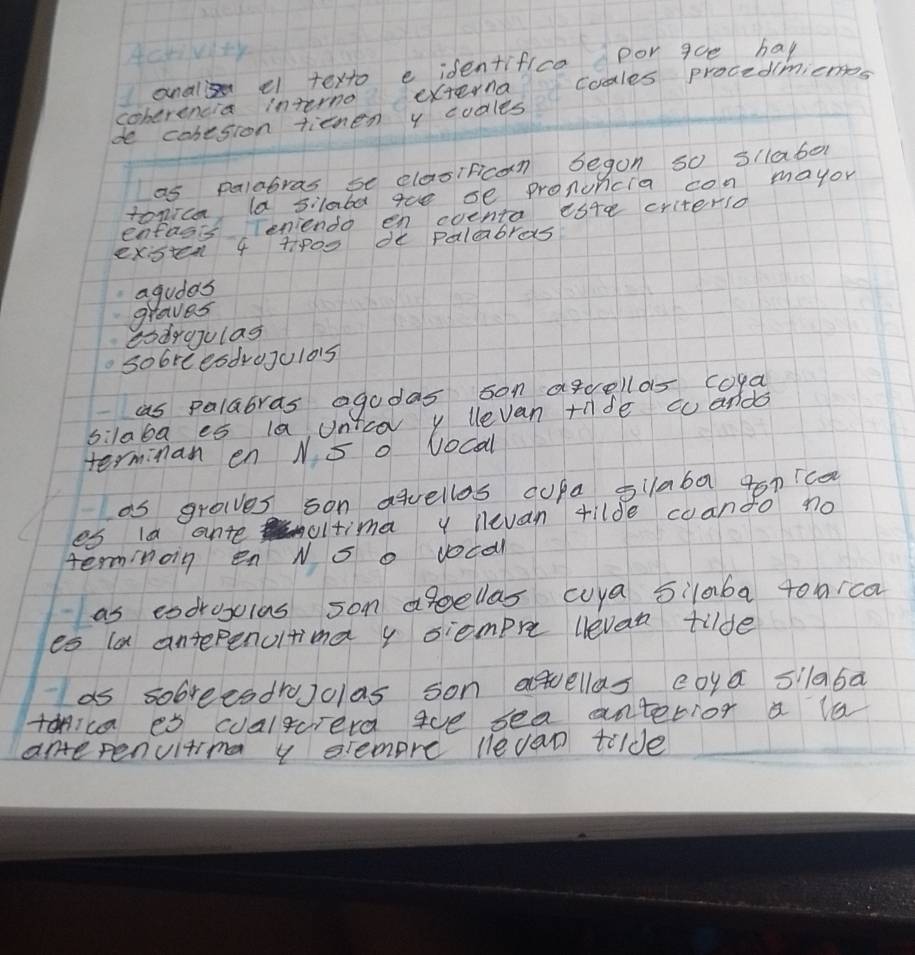 Activity
1 analiza el texto e identifica por que hay
coherencia interno externa cuales procedimientos
de cohesion tienen y cuales
Las palabras se clasifican segun su silaba
tonica, la silaba que se pronuncia con mayor
enfasis. Teniendo en cuenta este criterio
existen 4 tipos de palabras:
• agudas
• graves
• esdrujulas
• sobreesdrujulas
- Las palabras agudas son aquellas cuya
silaba es la unica y llevan tilde cuando
terminan en N, S o Vocal
- Las graves son aquellas cuya silaba tonica
es la ante ultima y llevan tilde cuando no
terminan en N, S o vocal
- las esdrujulas son aquellas cuya silaba tonica
es la antepenultima y siempre llevan tilde
- las sobreesdrujulas son aquellas cuya silaba
tonica es cualquiera que sea anterior a la
antepenultima y siempre llevan tilde